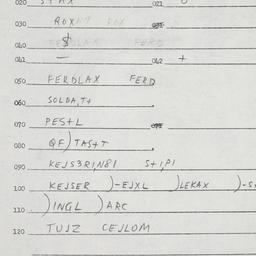 020 STAX 021
030 ROX
040 $
041 — 042 +
050 FERDLAX FERD
060 SOLDA,T+ .
070 PES+L
080 QF)TAS+T .
090 KEJS3R,N81 S+,P,
100 KEJSER )-EJXL )LEKAX )-S
110 )INGL )ARC
120 TUJZ CEJLOM